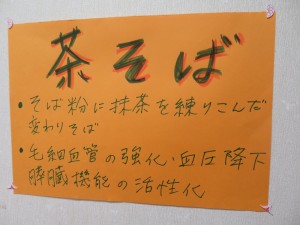 茶そば
• そば粉に抹茶を練りこんだ
変わりそば
• 毛細血管の強化・血圧降下
膵臓機能の活性化